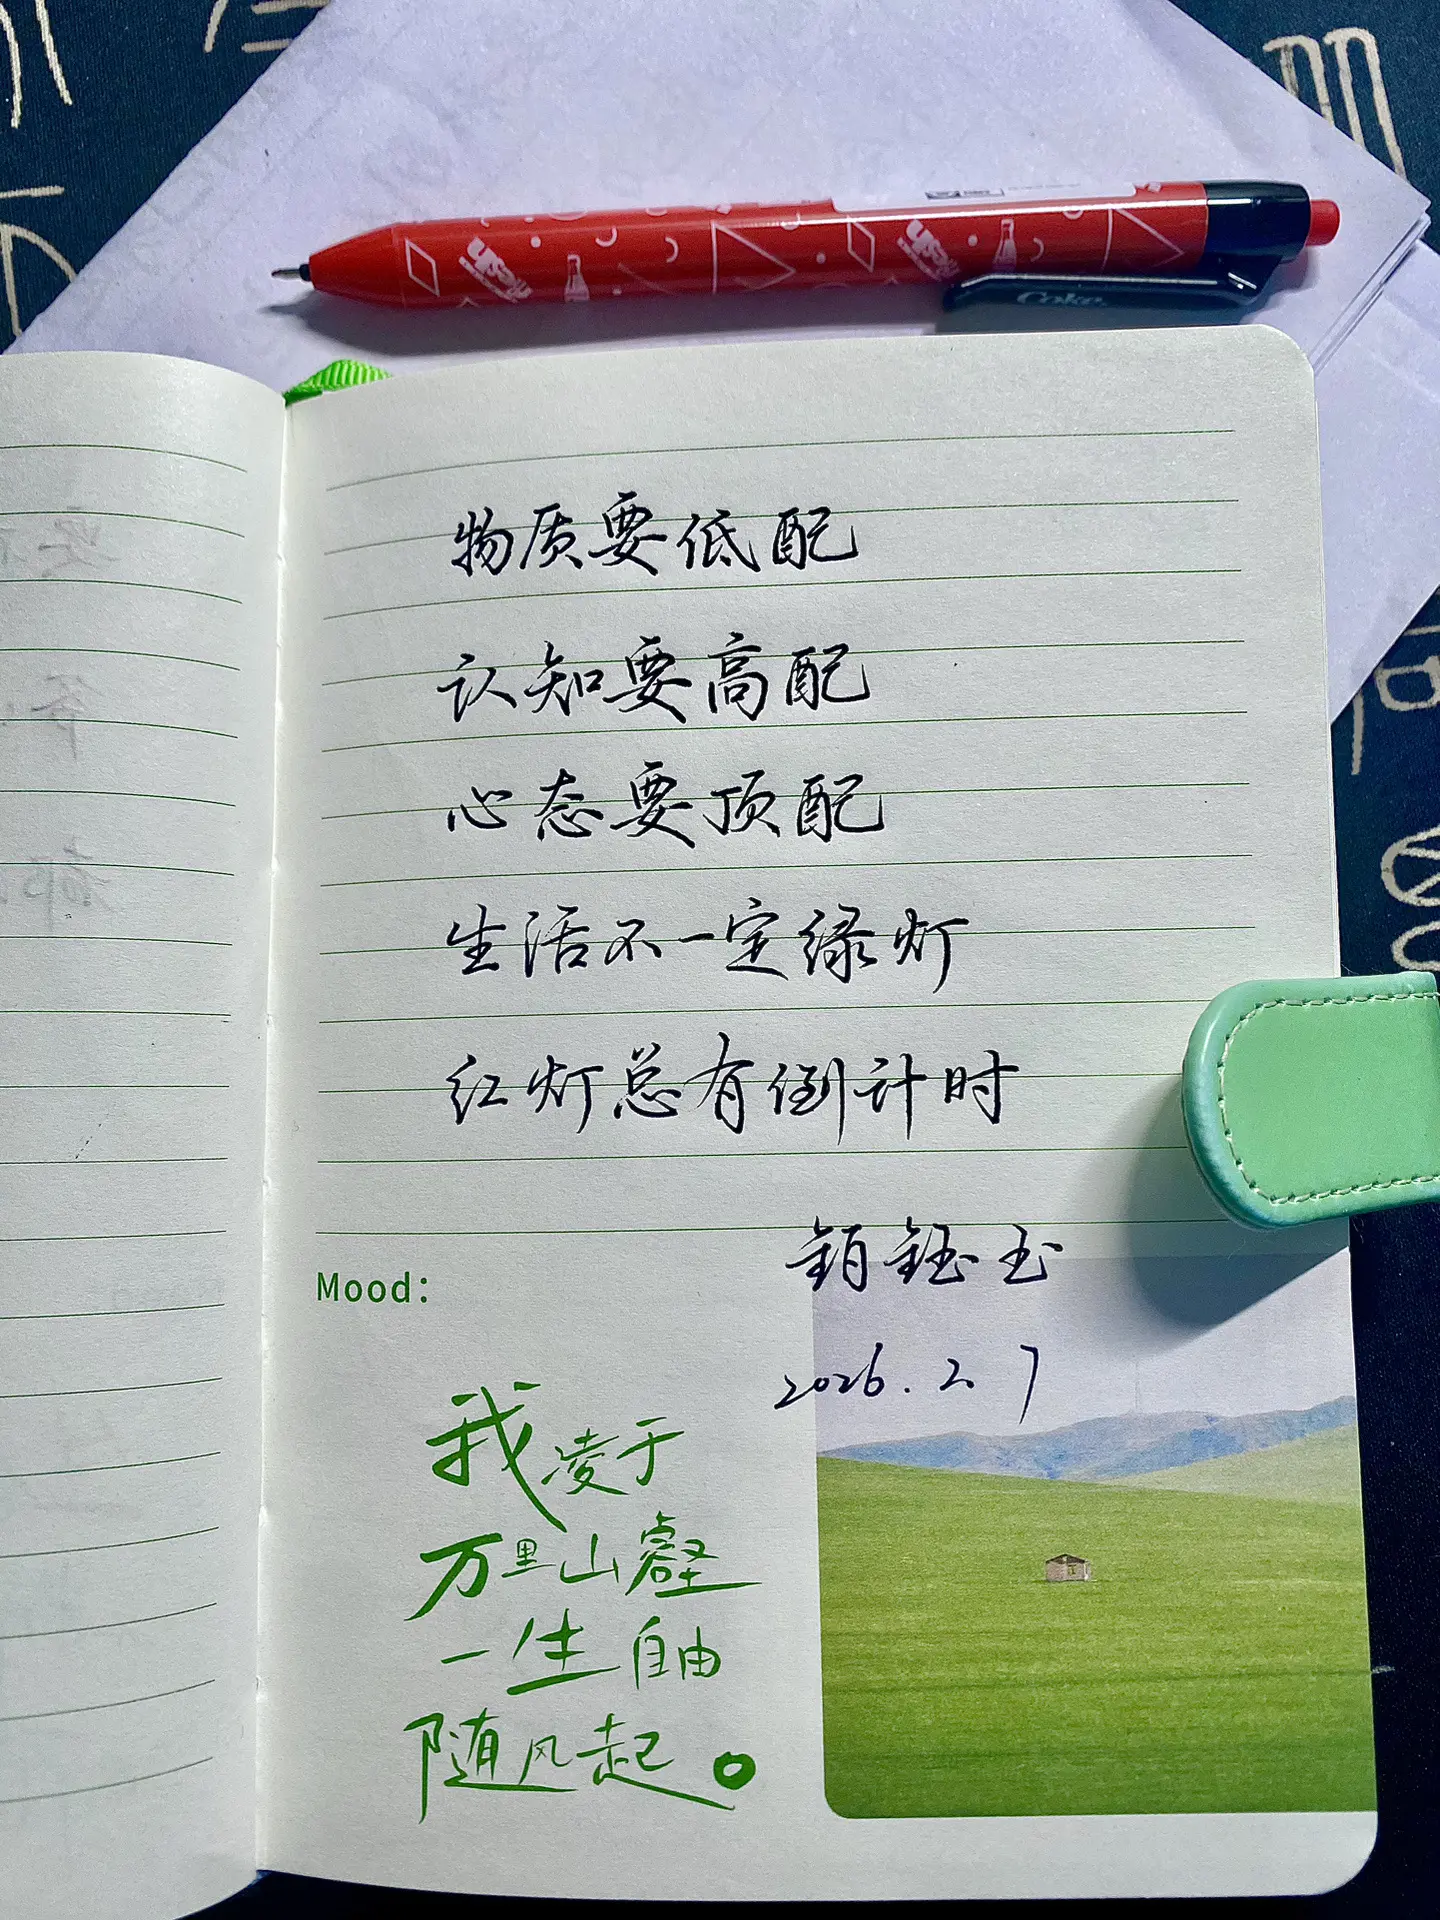 Coke
物质要低配
认知要高配
心态要顶配
生活不一定绿灯
红灯总有倒计时
钰玉
2026.2.7
Mood:
我凌于
万里山壑
一生自由
随风起。